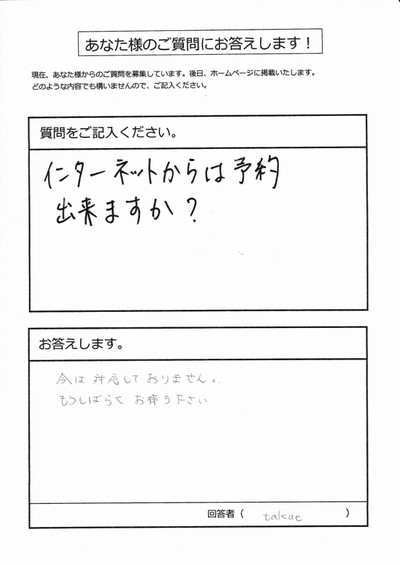 あなた様のご質問にお答えします！
現在、あなた様からのご質問を募集しています。後日、ホームページに掲載いたします。
どのような内容でも構いませんので、ご記入ください。
質問をご記入ください。
インターネットからは予約
出来ますか？
お答えします。
今は対応しておりません。
もうしばらくお待ち下さい
回答者（ takae ）